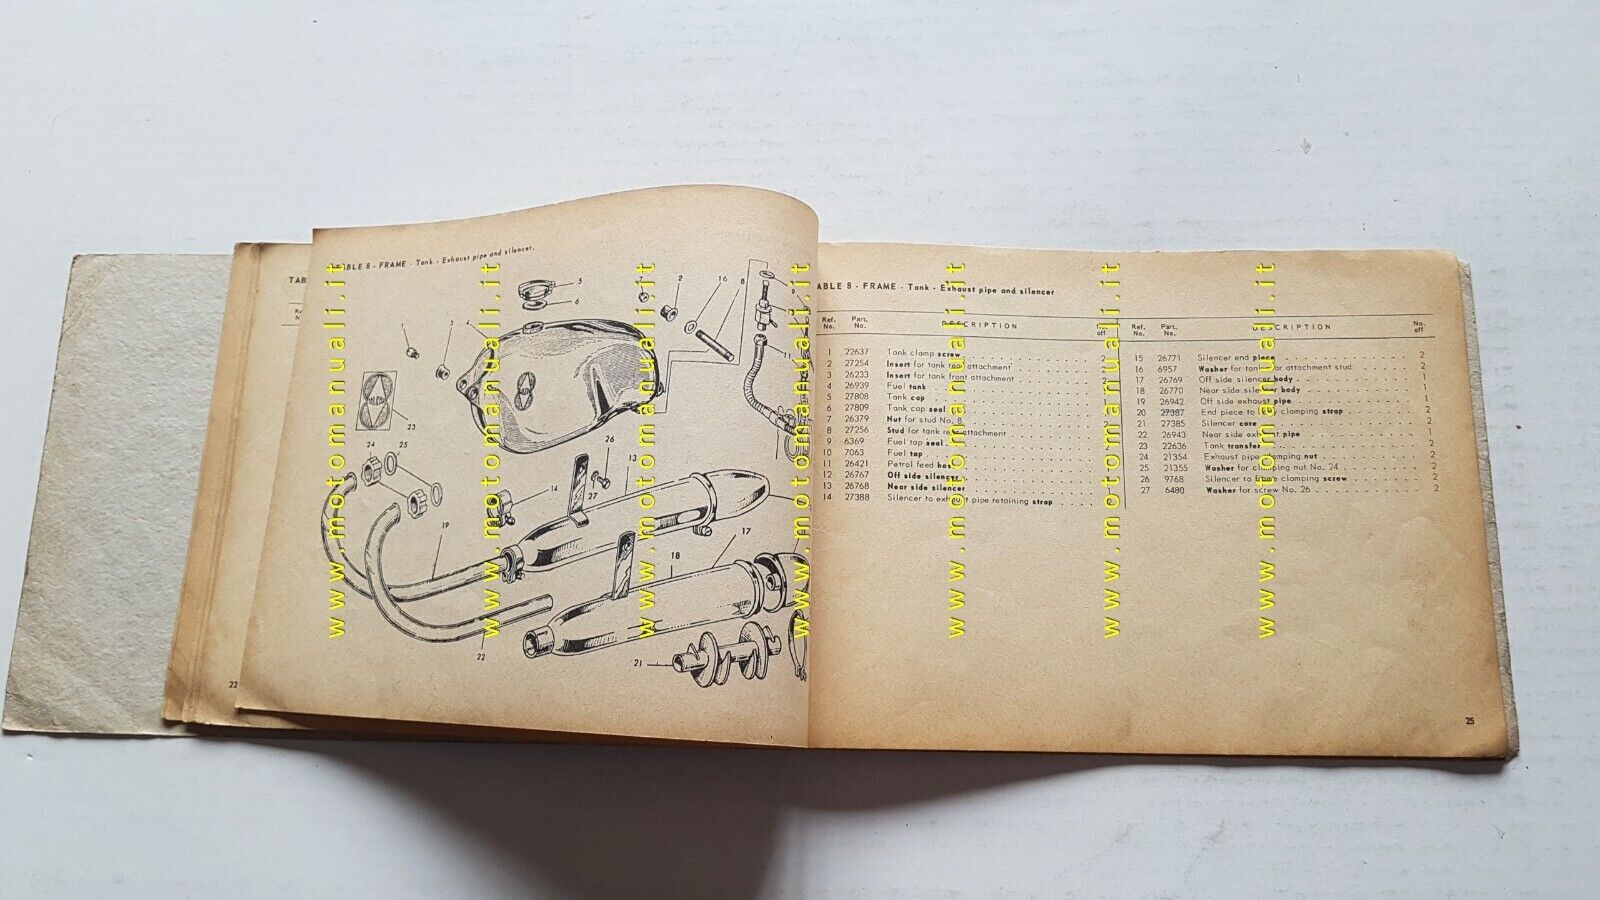 TABLE 8 - FRAME - Tank - Exhaust pipe and silencer.
TABLE 8 - FRAME - Tank - Exhaust pipe and silencer
Ref. No. Part. No. DESCRIPTION No. off
1 22637 Tank clamp screw 2
2 27254 Insert for tank rear attachment 2
3 26233 Insert for tank front attachment 2
4 26939 Fuel tank
5 27808 Tank cap
6 27809 Tank cap seal
7 26379 Nut for stud No. 8
8 27256 Stud for tank rear attachment
9 6369 Fuel tap seal 2
10 7063 Fuel tap
11 26421 Petrol feed hose
12 26767 Off side silencer
13 26768 Near side silencer
14 27388 Silencer to exhaust pipe retaining strap 2
Ref. No. Part. No. DESCRIPTION No. off
15 26771 Silencer end piece 2
16 6957 Washer for tank rear attachment stud 2
17 26769 Off side silencer body 1
18 26770 Near side silencer body 1
19 26942 Off side exhaust pipe 1
20 27387 End piece to body clamping strap 2
21 27385 Silencer core 2
22 26943 Near side exhaust pipe 1
23 22636 Tank transfer 2
24 21354 Exhaust pipe clamping nut 2
25 21355 Washer for clamping nut No. 24 2
26 9768 Silencer to frame clamping screw 2
27 6480 Washer for screw No. 26 2
25
22
www.motomanuali.it
www.motomanuali.it
www.motomanuali.it
www.motomanuali.it
www.motomanuali.it
www.motomanuali.it
www.motomanuali.it